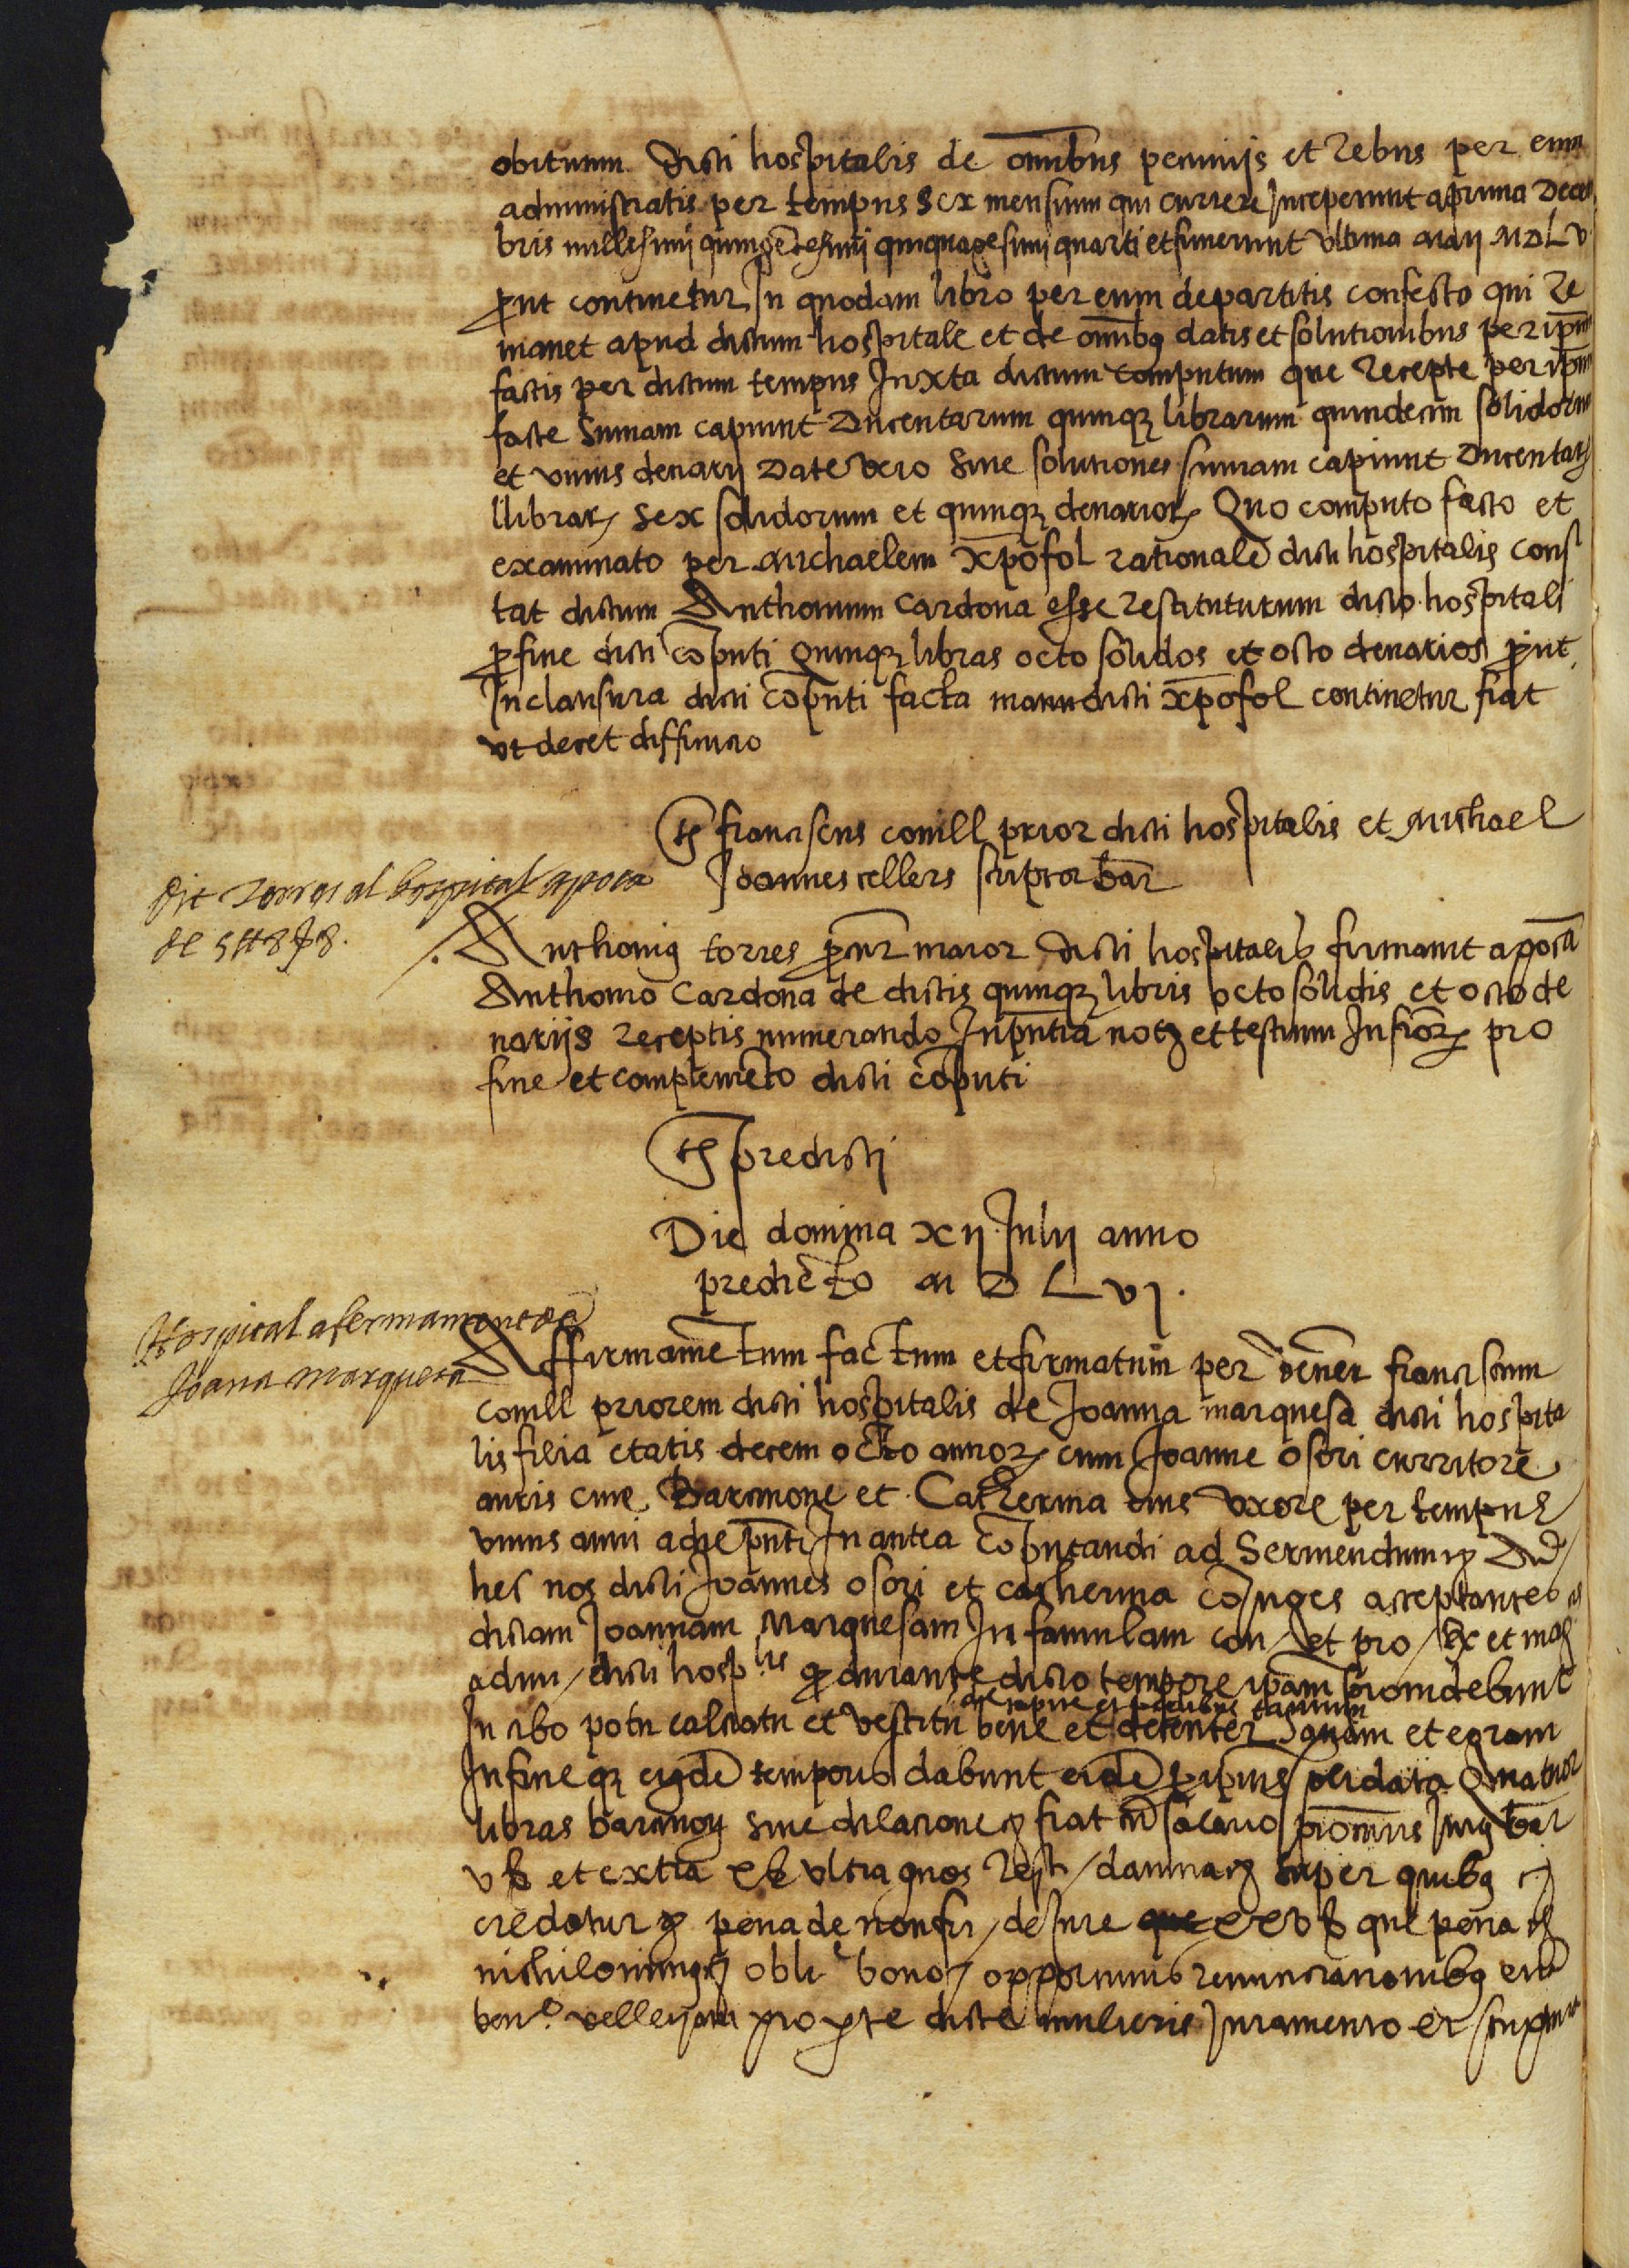 obitum dicti hospitalis de omnibus pecunijs et rebus per eum
administratis per tempus sex mensium qui currere Inceperunt a prima Decem
bris millesimi quingētesimi quinquagesimi quarti et finierunt ultima maij MDLV
prout continetur In quodam libro per eum de partitis confecto qui re
manet apud dictum hospitale et de omnibus datis et solutionibus per ipm
factis per dictum tempus Juxta dictum computum que recepte per ipm
facte Sumam capiunt Ducentarum quinque librarum quindecim solidorum
et unius denarij Date vero sive solutiones sumam capiunt Ducentarum
llibrar sex solidorum et quinque denarior Quo computo facto et
examinato per Michaelem xpofol rationale dicti hospitalis cons
tat dictum Anthonium Cardona esse restituturum dicto hospitali
pro fine dicti coputi quinque libras octo solidos et octo denarios prout
In clausura dicti coputi facta manu dicti xpofol continetur fiat
ut decet diffinicio
ts franciscus conill prior dicti hospitalis et Michael
Joannes cellers scriptor bar
dit torres al hospital apoca
de 5 ℔ 8 ß 8.
Anthonius torres procur maior dicti hospitalis firmavit apocā
Anthonio Cardona de dictis quinque libris octo solidis et octo de
narijs receptis numerando In pntia not et testium Infror pro
fine et complemēto dicti coputi
ts predicti
Die domina xij Julij anno
predicto M D L vj.
Hospital afermament de
Joana marquesa
Affirmamētum factum et firmatum per vener franciscum
conill priorem dicti hospitalis de Joanna marquesa dicti hospita
lis filia etatis decem octo annor cum Joanne osori curritore
auris cive Barcinone et Catherina eius uxore per tempus
unius anni a die pnti In antea coputandi ad Serviendum Ad
hec nos dicti Joannes osori et catherina coniuges acceptantes
dictam Joannam Marquesam In famulam con et pro
dicti hosp durante dicto tempore ipam providebunt
In cibo potu calciatu et vestitu bene et decenter sanam et egram
de capite et pedibus tantum
In fine que eiusdē temporis dabunt eidē solidata Quatuor
libras barcinon sine dilacione fiat cū salario
et extra ultra quos rest dampnar super quibus
credatur pena de non fir de Jure que pena
nichilominus obli bonor opportunis renunciationibus
velleyani pro parte dicte mulieris Juramento et